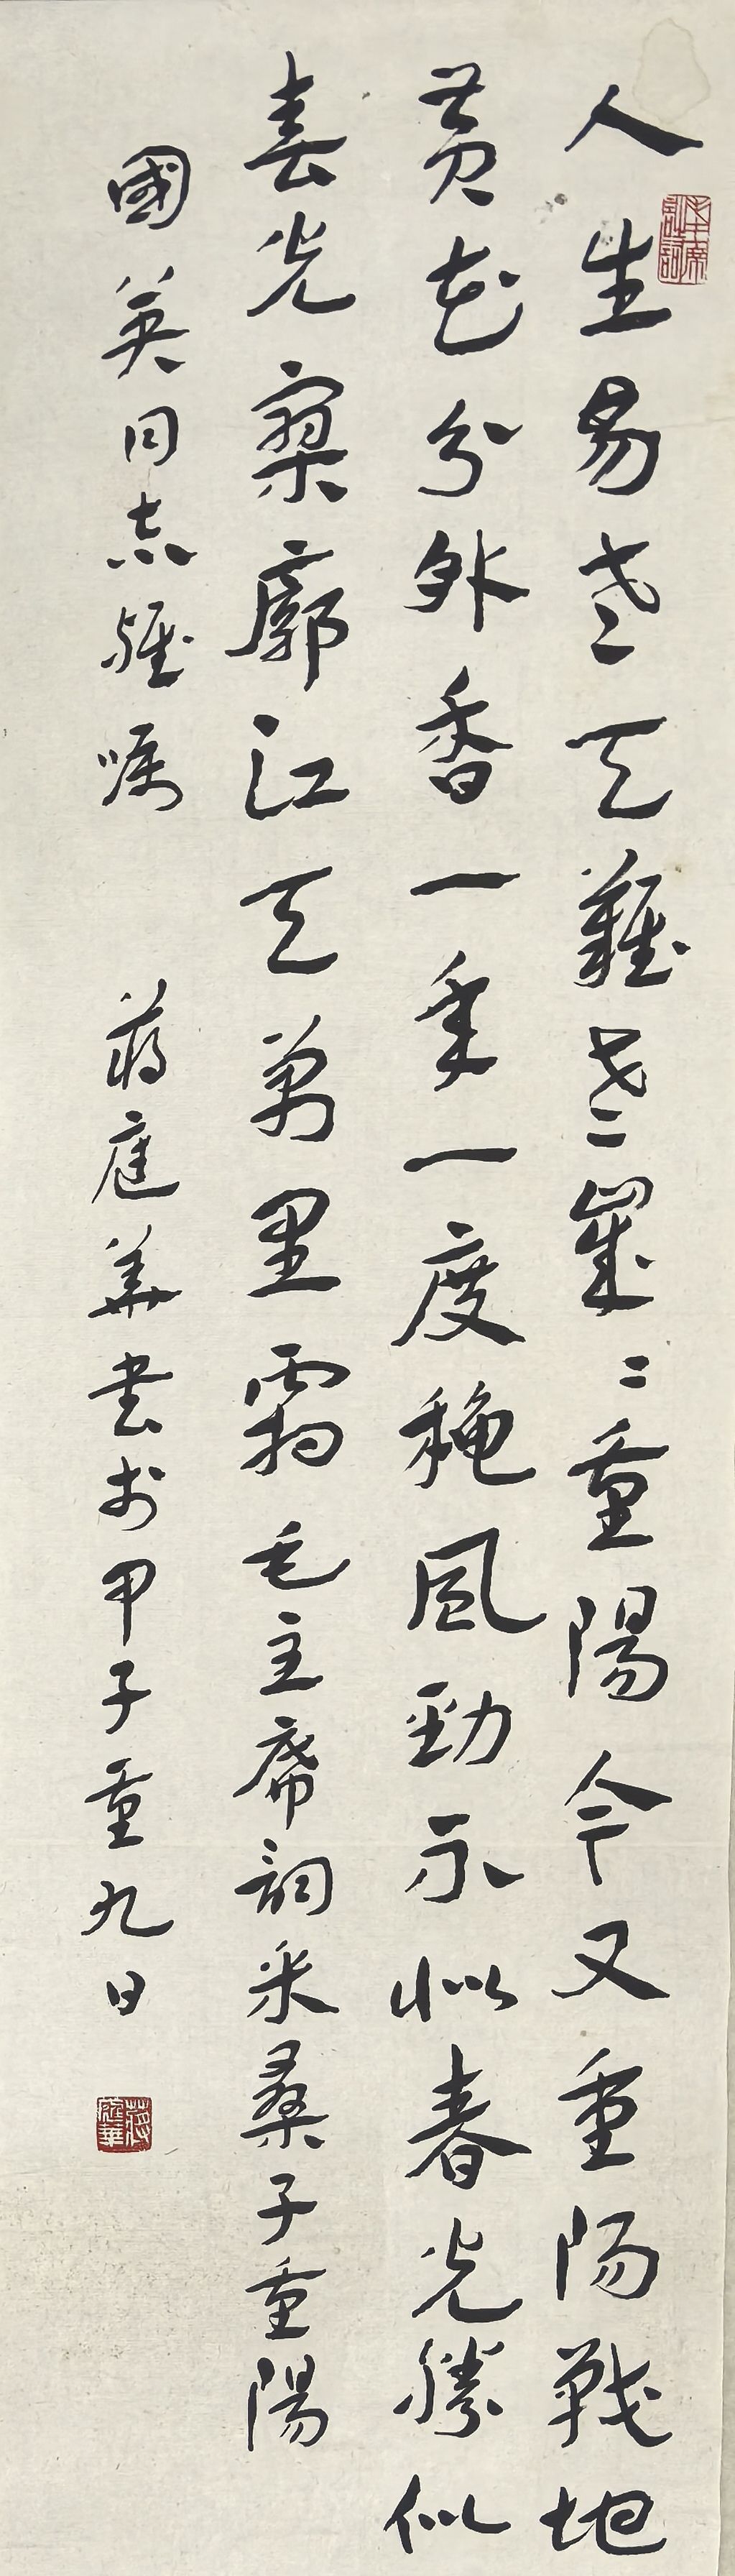 人生易老天難老歲〻重陽今又重陽戰地
黄花分外香一年一度秋風勁不似春光勝似
春光寥廓江天萬里霜毛主席詞采桑子重陽
國英同志雅嘱
蔣庭華書于甲子重九日